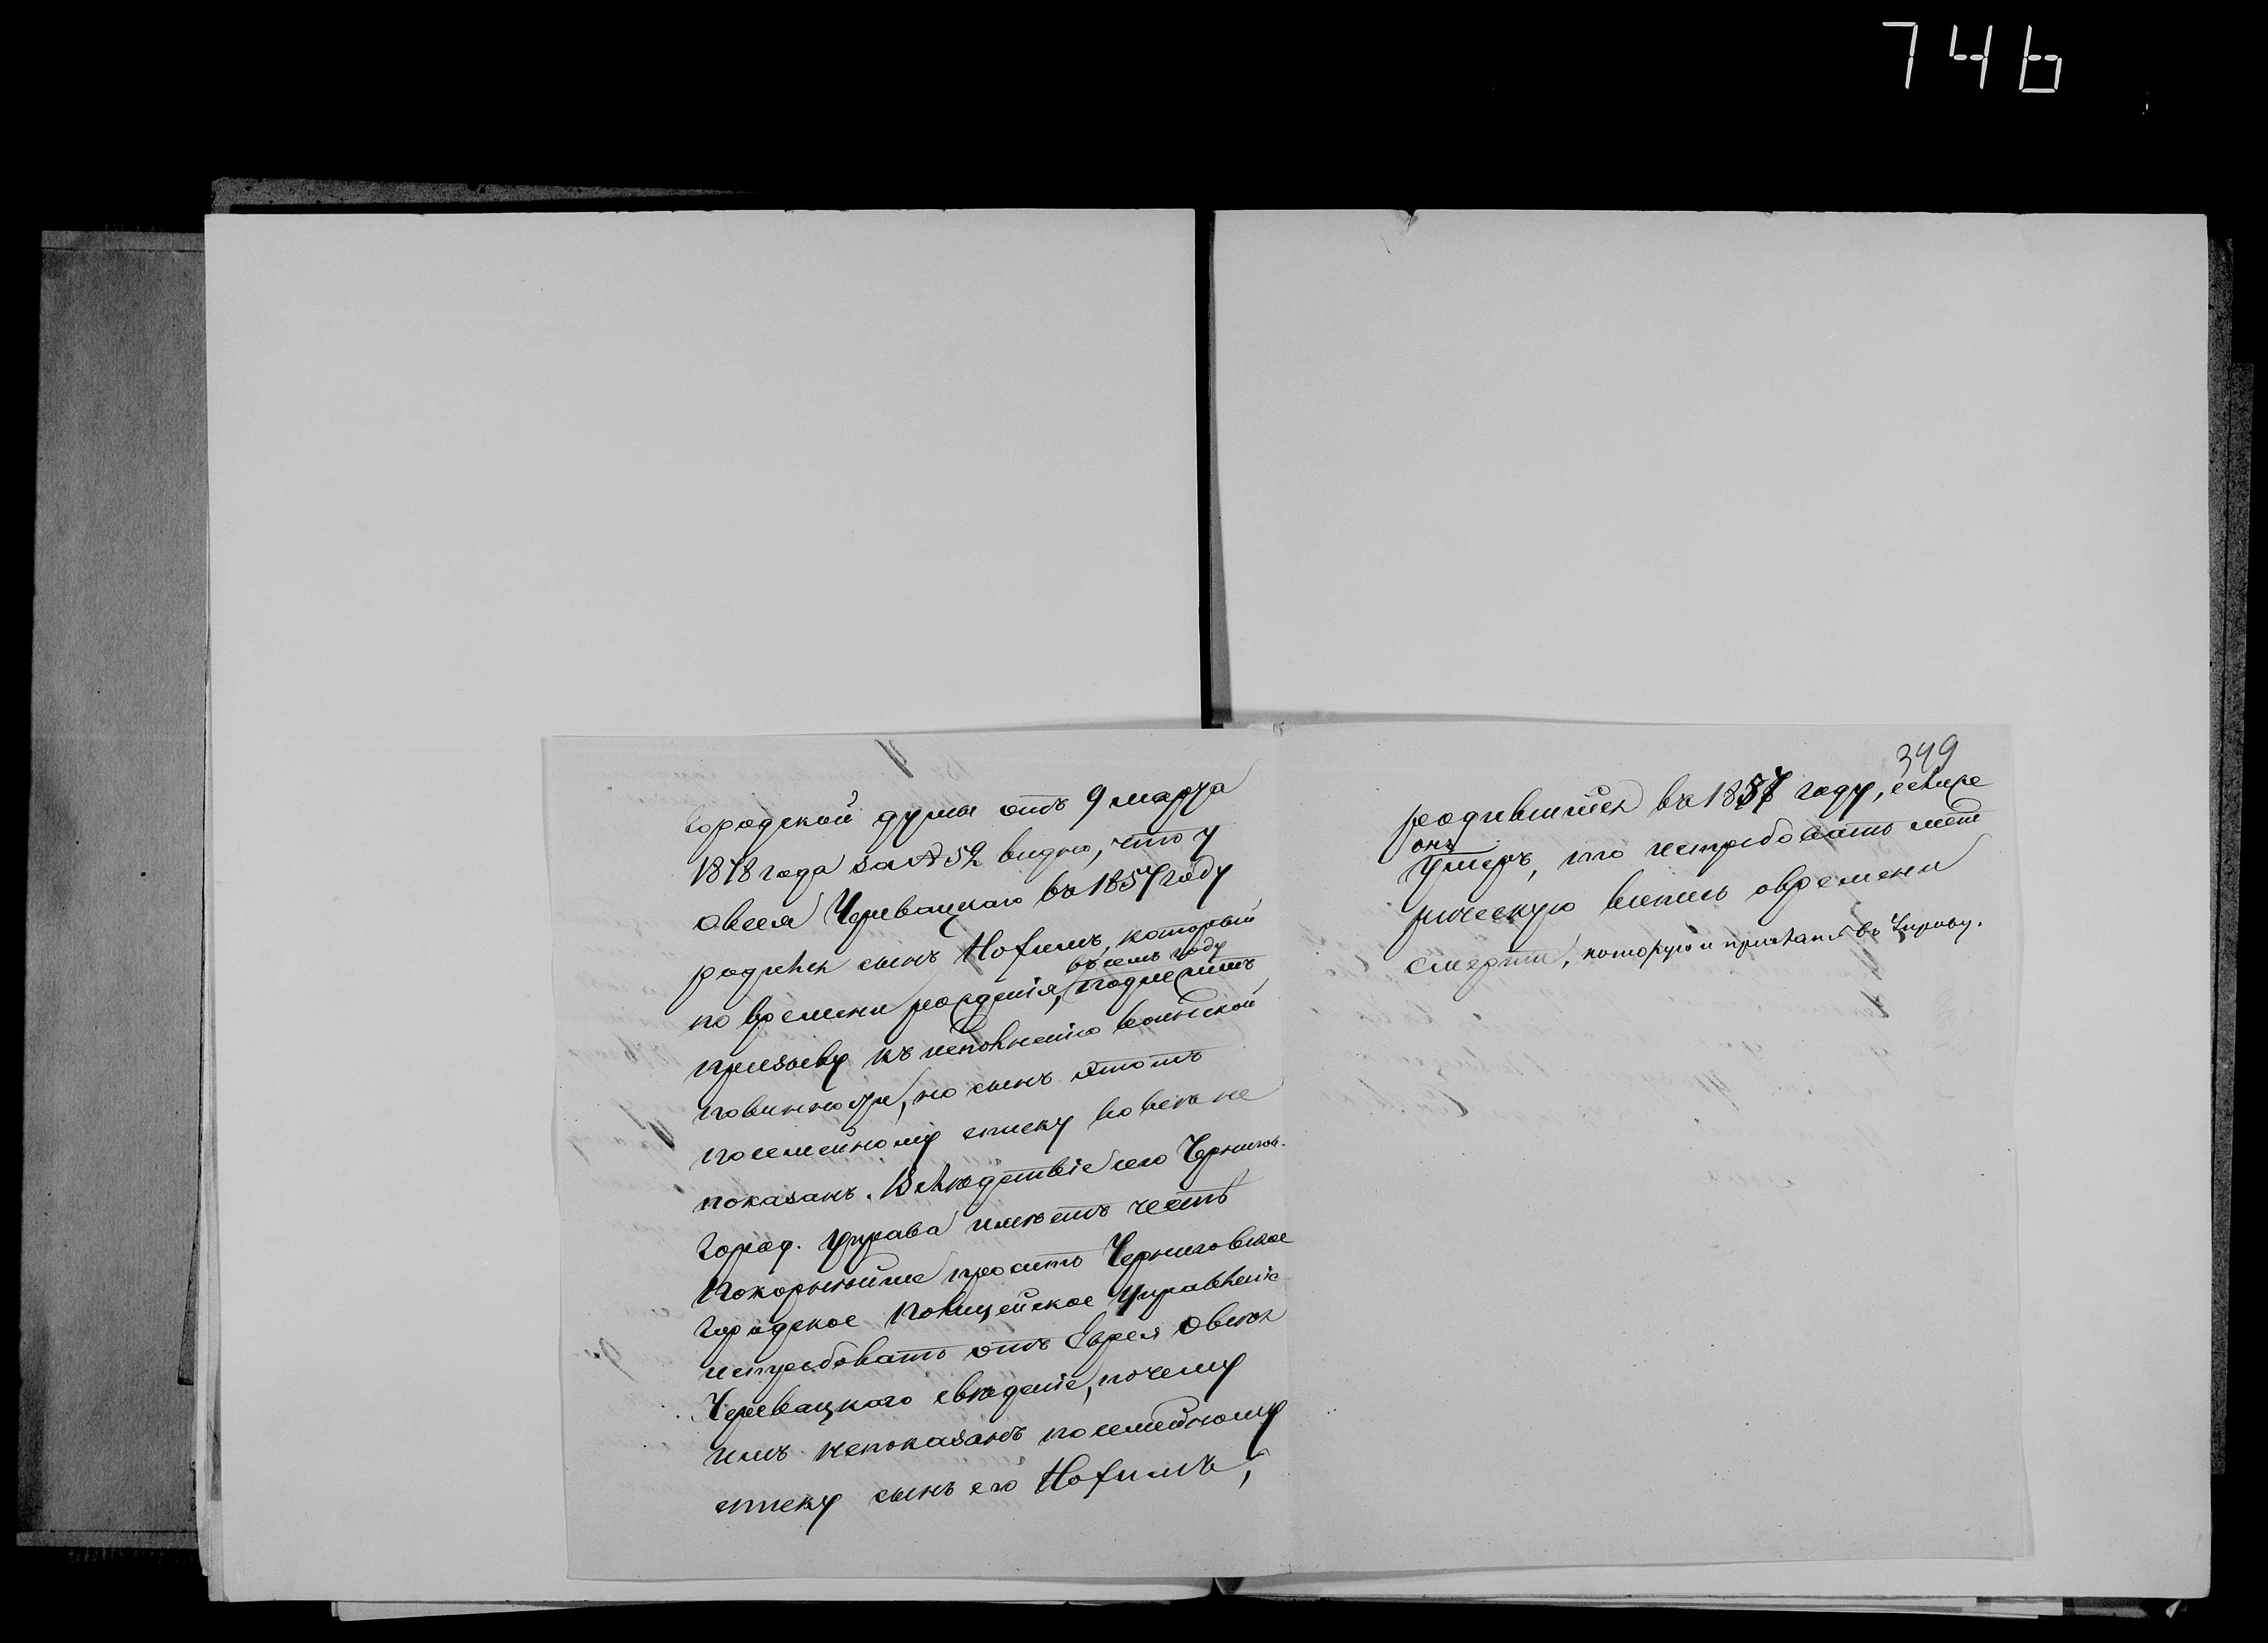 746
городской думы отъ 9 марта
1878 года за № 52 видно, что у
Овсея Черевацкаго въ 1857 году
родился сынъ Нохимъ, который
въ семъ году
по времени рожденія, подлежитъ
призыву къ исполненію воинской
повинности, но сынъ этотъ
посемейному списку вовсе не
показанъ. Вслѣдствіе сего Чернигов.
Город. Управа имѣетъ честь
покорнѣйше просить Черниговское
Городское Полицейское Управленіе
истребовать отъ Еврея Овсѣя
Черевацкаго свѣденіе, почему
имъ непоказанъ посемейному
списку сынъ его Нохимъ,
349
родившійся въ 1857 году, еслиже
онъ
умеръ, то истребовать мет
рическую выпись овремени
смерти, которую и прислать въ Управу.